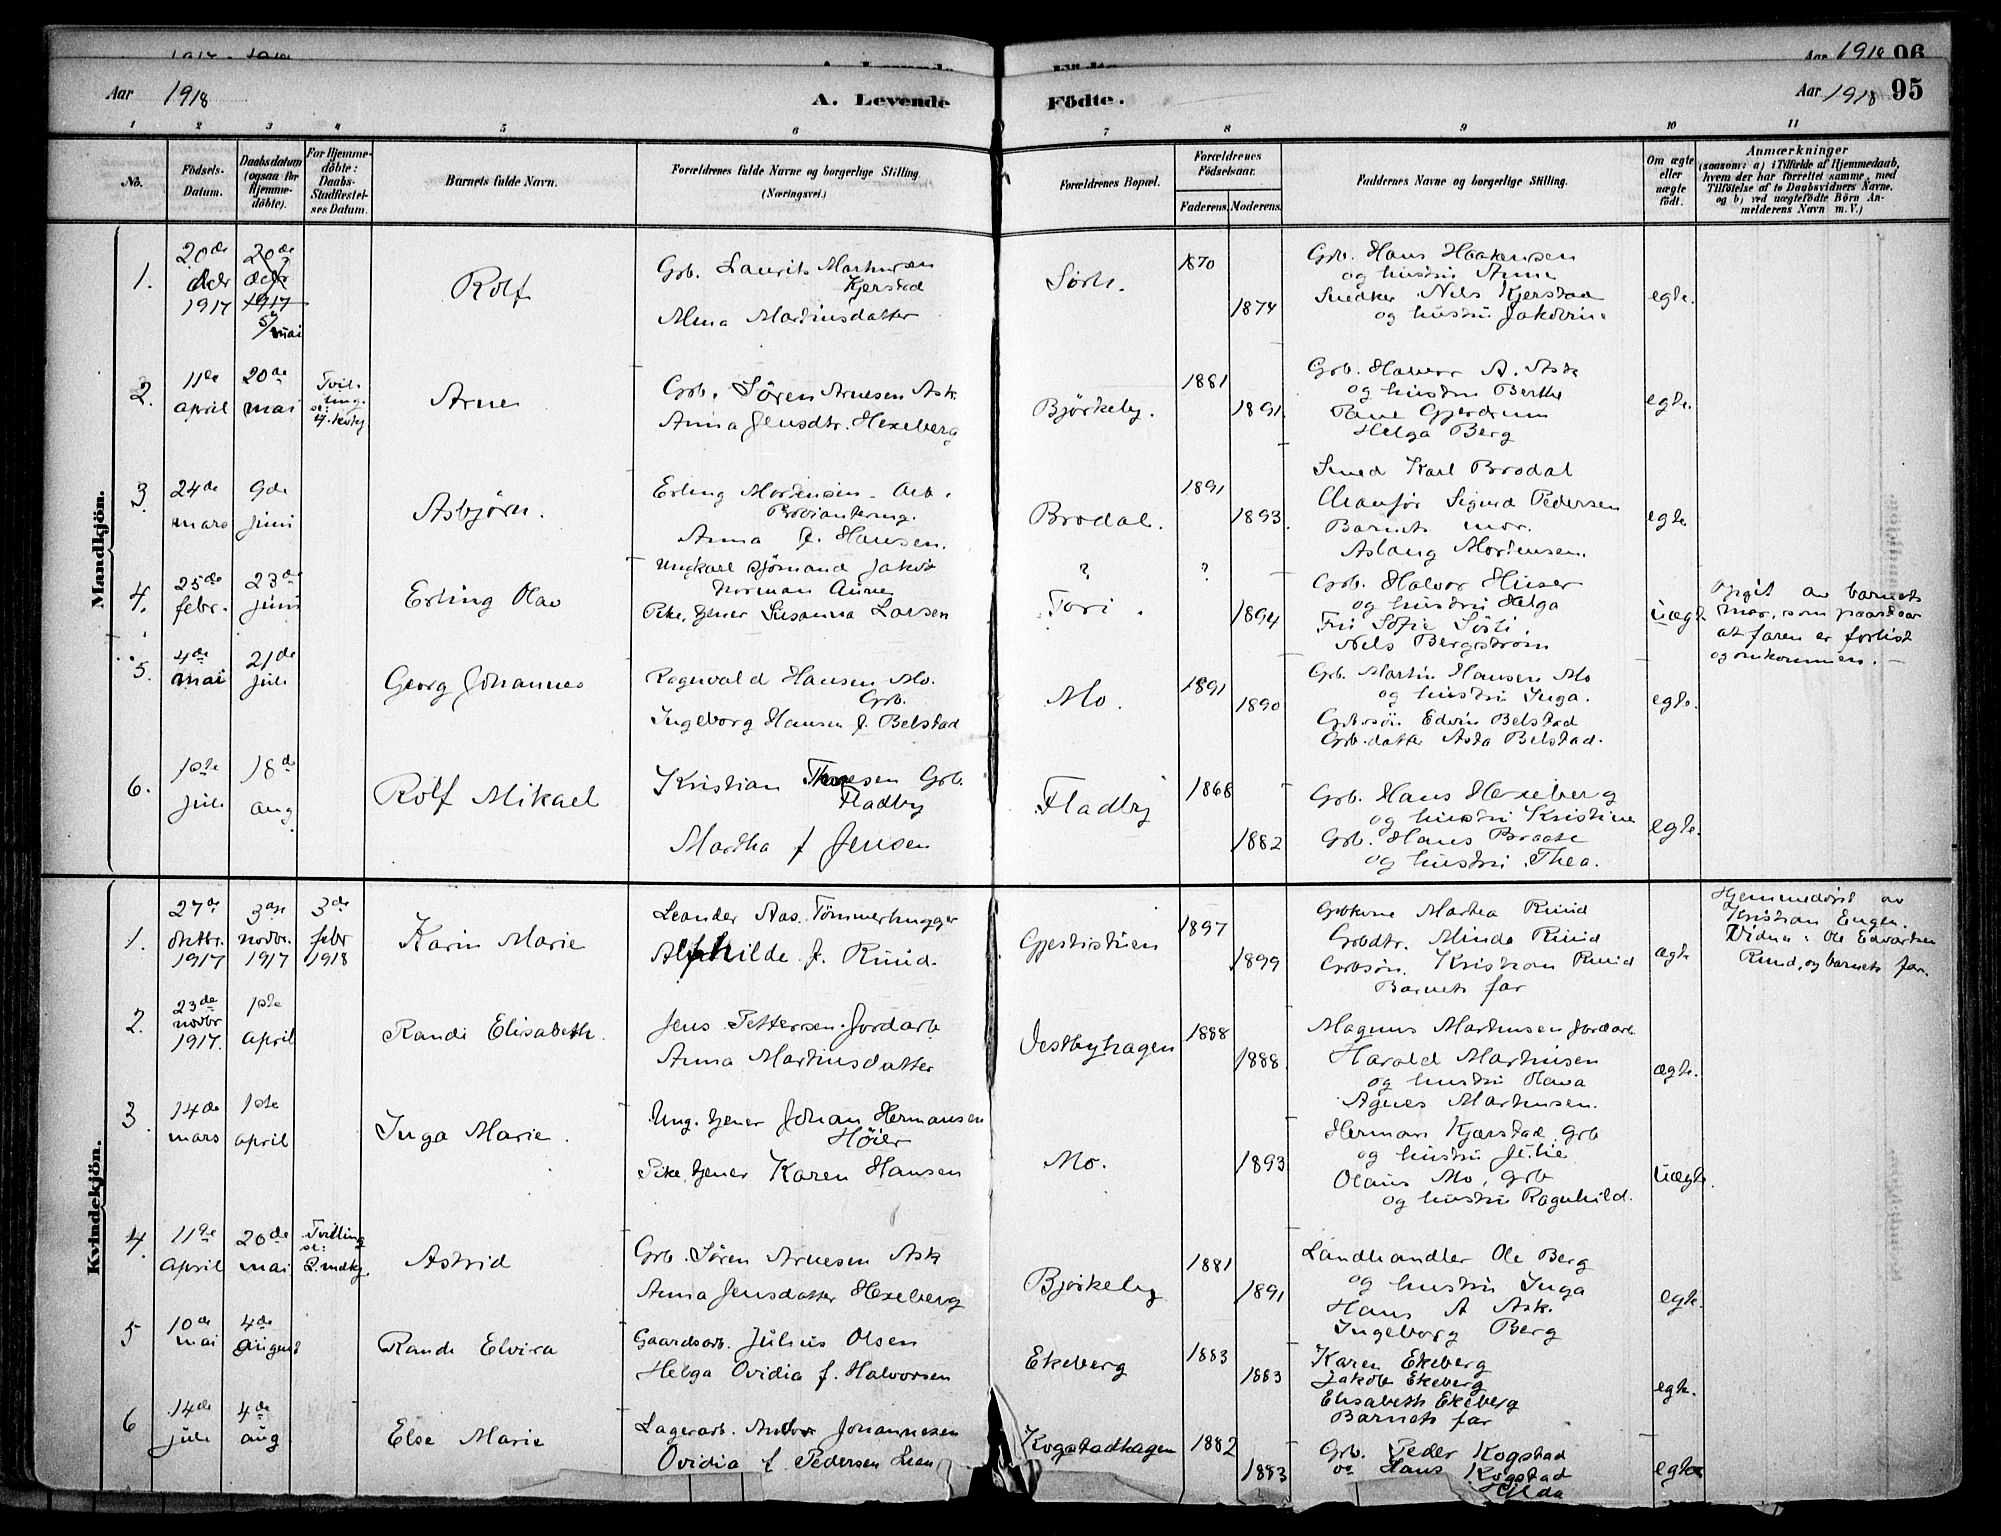 Aar 1918 96
Aar 1918 A. Levende Födte. Aar 1918 95
1 2 3 4 5 6 7 8 9 10 11
No.
Födsels-
Datum.
Daabsdatum
(ogsaa for
Hjemme-
döbte).
For Hjemme-
döbte:
Daabs-
Stadfæstel-
ses Datum.
Barnets fulde Navn.
Forældrenes fulde Navne og borgerlige Stilling.
(Næringsvei.)
Forældrenes Bopæl.
Forældrenes
Födselsaar.
Faderens. Moderens.
Faddernes Navne og borgerlige Stilling.
Om ægte
eller
uægte
födt.
Anmærkninger
(saasom: a) i Tilfælde af Hjemmedaab,
hvem der har forrettet samme, med
Tilföielse af to Daabsvidners Navne.
og b) ved uægtefödte Börn An-
melderens Navn m. V.)
Mandkjön.
1.
20de
decbr
1917
20de
decbr
1917
5/mai
Rolf
Grb. Laurits Martinsen
Kjerstad
Alma Martinsdatter
Sørli.
1870
1874
Grb. Hans Haakensen
og hustru Anne
Snedker Nils Kjerstad
og hustru Jakobine
egte.
2.
11te
april
20de
mai
Tvil-
ling.
se:
4. kvkj
Arne
Grb. Søren Arnesen Ask
Anna Jensdtr. Hexeberg
Björkeby.
1881
1891
Grb. Halvor A. Ask
og hustru Berthe
Gjerdrum
Helga Berg
egte.
3.
24de
mars
9de
juni
Asbjørn.
Erling Mortensen - Arb.
Proviantering.
Anna f. Hansen.
Brodal.
1891
1893
Smed Karl Brodal
Chaufør Sigurd Pedersen
Barnets mor.
Aslaug Mortensen.
egte
4.
25de
febr.
23de
juni
Erling Olav
Ungkarl sjömand Jakob
Norman Aune
Pike, tjener Susanna Larsen
?
Tori.
?
1894
Grb. Halvor Huser
og hustru Helga
Fru Sofie Sørli.
Nels Bergström
uegte
Opgit av barnets
mor, som paastaar
at faren er forlist
og omkommen. -
5.
4de
mai
21de
juli
Georg Johannes
Ragnvald Hansen Mo.
Grb.
Ingeborg Hansen f. Belstad
Mo.
1891
1890
Grb. Martin Hansen Mo
og hustru Inga.
Grb.søn Edvin Belstad
Grb.datter Asta Belstad.
egte.
6.
1ste
juli
18de
aug
Rolf Mikael
Kristian Thoresen Grb.
Fladby
Martha f Jensen
Fladby
1868
1882
Grb. Hans Hexeberg
og hustru Kristine
Grb. Hans Braate
og hustru Thea.
egte.
Kvindekjön.
1.
27de
oktbr.
1917
3die
novbr.
1917
3de
febr
1918
Karin Marie
Leander Aas. Tömmerhugger
Alfhilde f. Ruud.
Gjestistuen
1897
1899
Grbkone Martea Ruud
Grbdtr. Minda Ruud
Grbsön. Kristian Ruud
Barnets far
ægte
Hjemmedöbt av
Kristian Engen.
Vidner: Ole Edvartsen
Ruud, og barnets far.
2.
23de
novbr
1917.
1ste
april
Randi Elisabeth.
Jens Pettersen. Jordarb
Anna Martinsdatter
Vestbyhagen
1888
1888.
Magnus Martinsen Jordarb.
Harald Martinsen
og hustru Olava
Agnes Martinsen.
ægte.
3
14de
mars
1ste
april
Inga Marie.
Ung. tjener Johan Hermansen
Høier
Pike, tjener Karen Hansen
Mo.
1893
Herman Kjærstad, Grb
og hustru Julie
Olaus Mo, grb
og hustru Ragnhild.
Uægte.
4.
11te
april
20de
mai
Tvilling
se:
2. mdkj.
Astrid
Grb. Søren Arnesen Ask
Anna Jensdatter Hexeberg
Bjørkeby
1881
1891
Landhandler Ole Berg
og hustru Inga
Hans A Ask.
Ingeborg Berg
egte.
5
10de
mai
4de
august
Randi Elvira
Gaardsarb. Julius Olsen
Helga Ovidia f. Halvorsen
Ekeberg
1883
1883
Karen Ekeberg
Jakob Ekeberg
Elisabeth Ekeberg
Barnets far
egte.
6
14de
juli
4de
aug
Else Marie
Lagerarb. Johannesen
Ovidia f. Pedersen
Kogstadhagen
1882
1883
Grb. Peder Kogstad
og Hans Kogstad
Hilda
egte